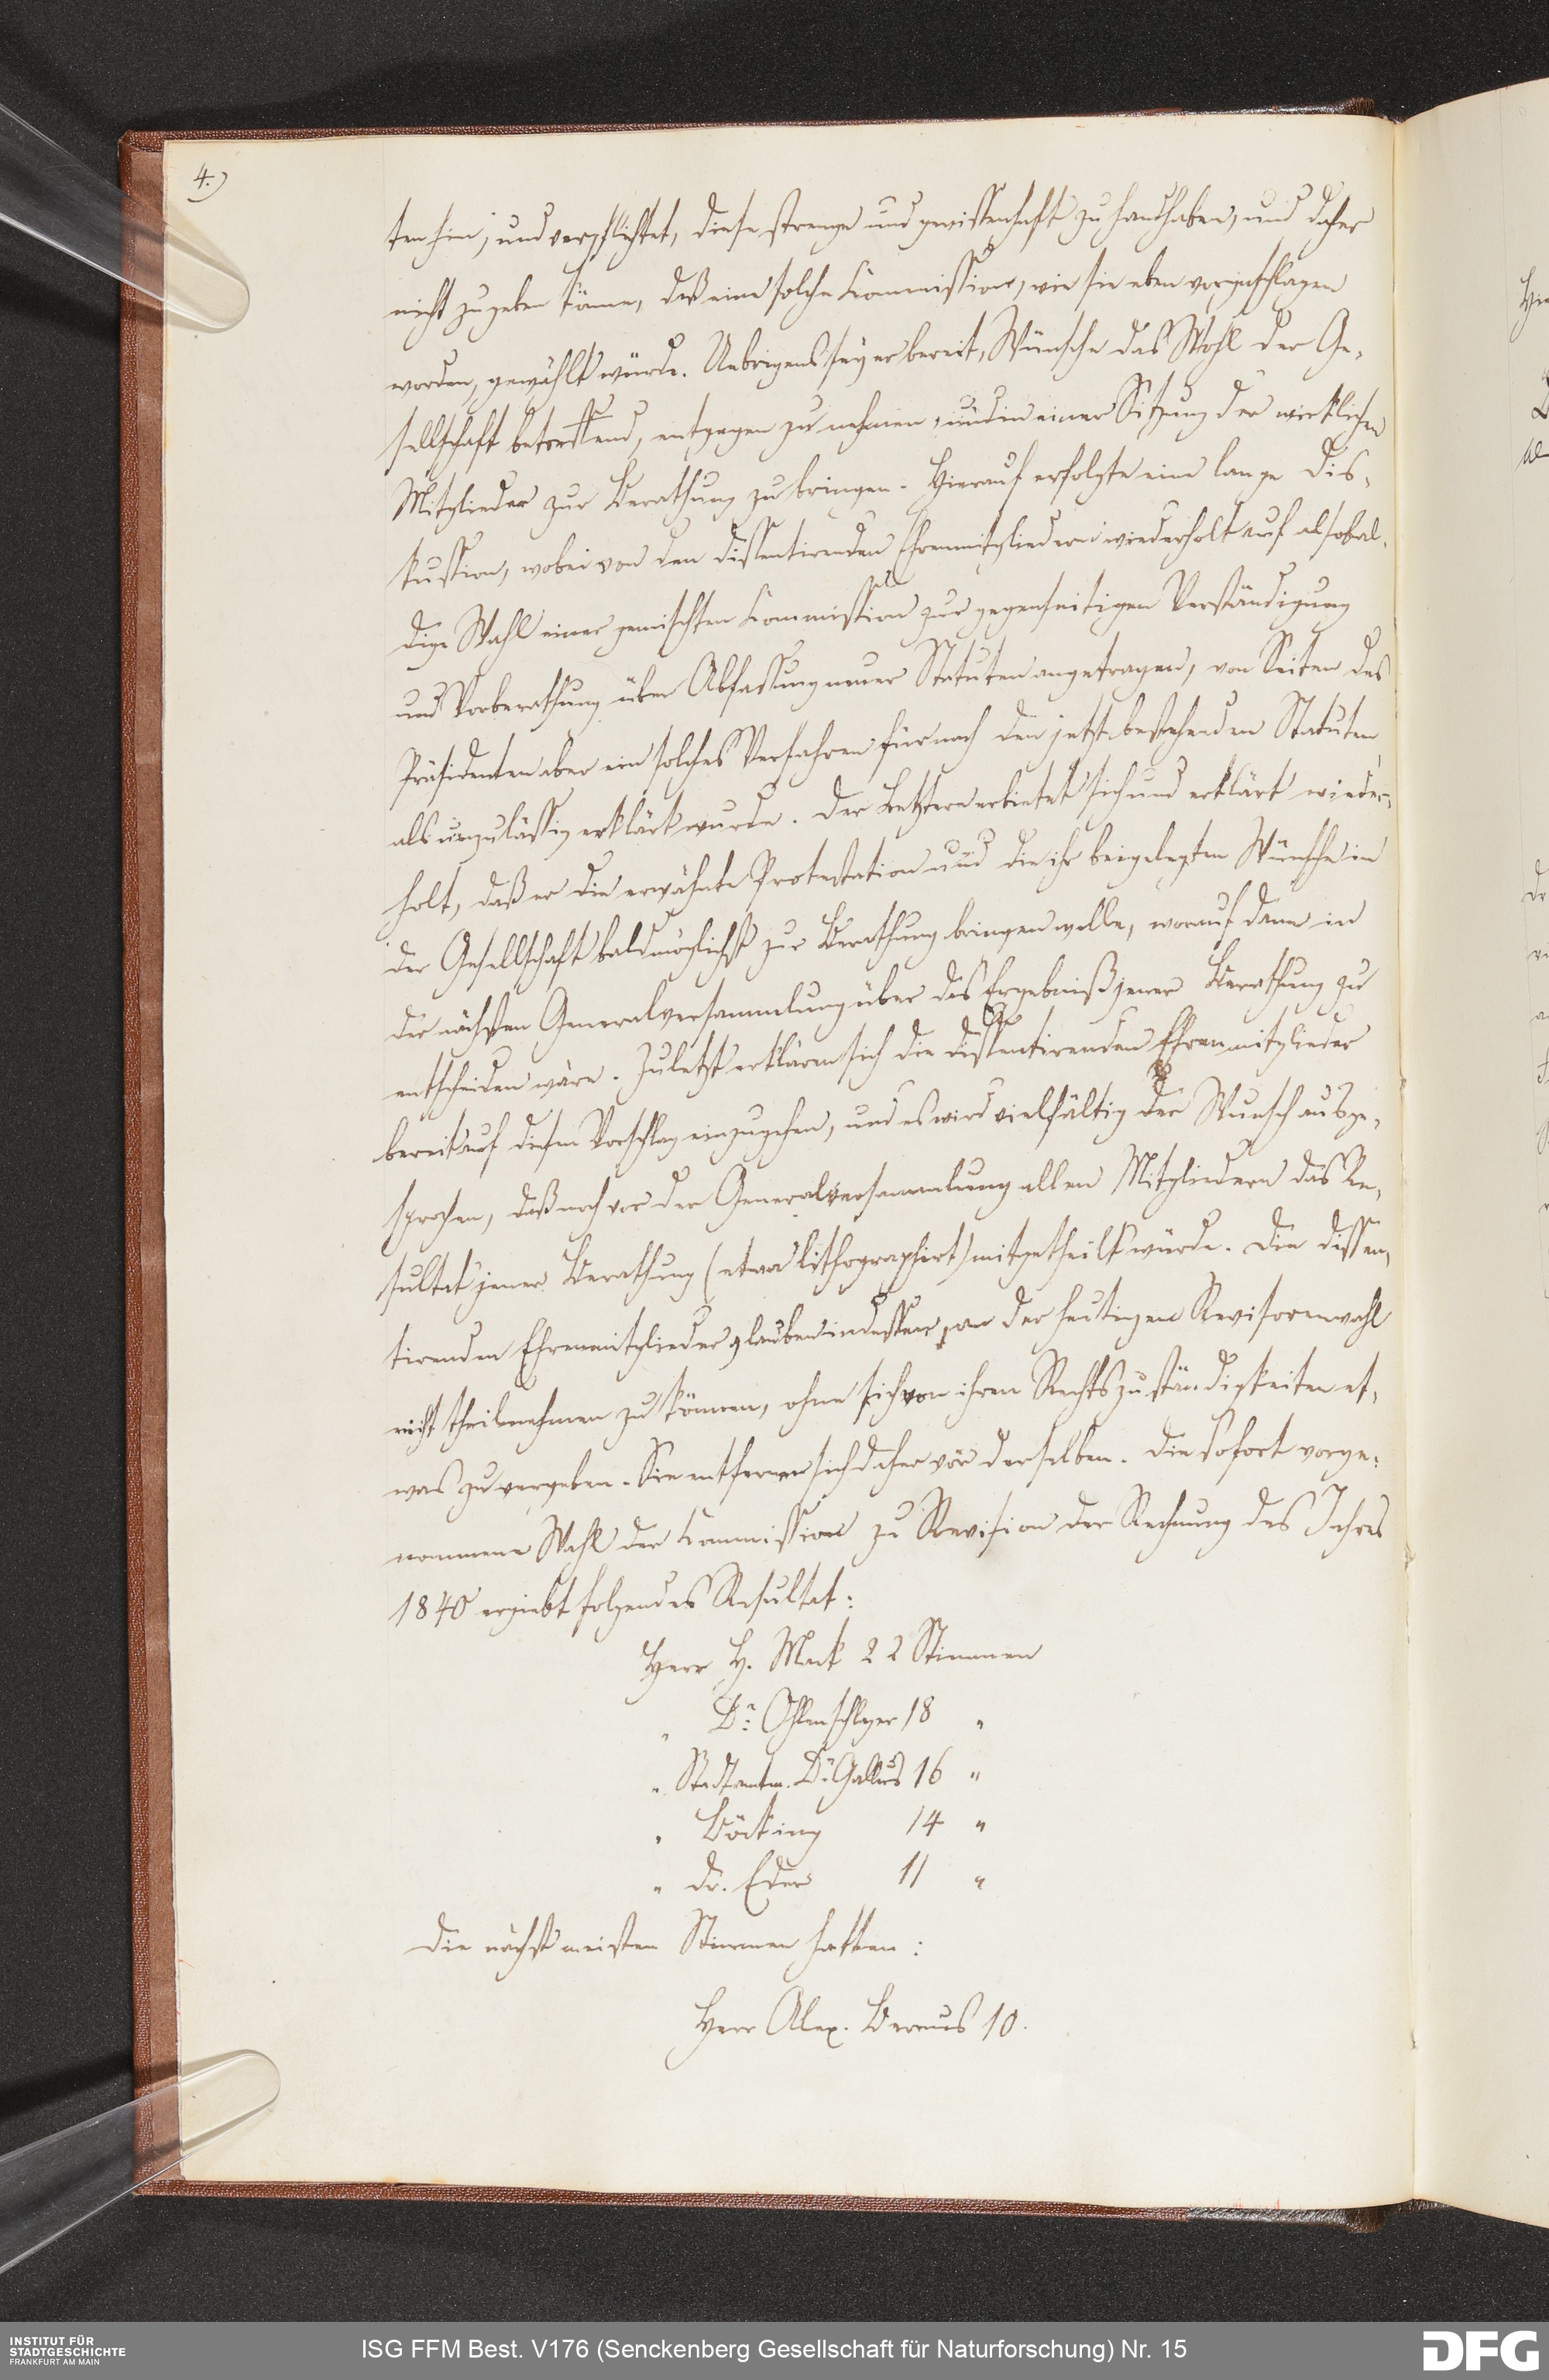 4.)
ten hin, und verpflichtet, diese strenge und gewissenhaft zu handhaben, und daher
nicht zugeben könne, daß eine solche Kommission, wie sie eben vorgeschlagen
worden, gewählt würde. Uebrigens sey er bereit, Wünsche das Wohl der Ge-
sellschaft betreffend, entgegen zu nehmen, und in einer Sitzung der wirklichen
Mitglieder zur Berathung zu bringen. Hierauf erfolgte eine lange Dis-
kussion, wobei von den dissentirenden Ehrenmitgliedern wiederholt auf alsobal-
dige Wahl einer gemischten Kommission zur gegenseitigen Verständigung
und Vorberathung über Abfassung neuer Statuten angetragen, von Seiten des
Präsidenten aber ein solches Verfahren für nach den jetzt bestehenden Statuten
als unzulässig erklärt wurde. Der Letztere erbietet sich und erklärt wieder-
holt, daß er die erwähnte Protestation und die ihr beigelegten Wünsche in
der Gesellschaft baldmöglichst zur Berathung bringen wolle, worauf dann in
der nächsten Generalversammlung über das Ergebniß jener Berathung zu
entscheiden wäre. Zuletzt erklären sich die dissentirenden Ehrenmitglieder
bereit auf diesen Vorschlag einzugehen, und es wird vielfältig der Wunsch ausge-
sprochen, daß noch vor der Generalversammlung allen Mitgliedern das Re-
sultat jener Berathung (etwa lithographirt) mitgetheilt würde. Die dissen-
tirenden Ehrenmitglieder glauben indessen, an der heutigen Revisorenwahl
nicht theilnehmen zu können, ohne sich von ihren Rechtszuständigkeiten et-
was zu vergeben. Sie entfernen sich daher vor derselben. Die sofort vorge-
nommene Wahl der Kommission zu Revision der Rechnung des Jahres
1840 ergiebt folgendes Resultat:
Herr H. Mack 22 Stimmen
" Dr. Ohlenschlager 18 "
" Stadtamtm. Dr. Gallus 16 "
" Böcking 14 "
" Dr. Eder 11 "
Die nächst meisten Stimmen hatten:
Herr Alex. Bernus 10.
INSTITUT FÜR
STADTGESCHICHTE
FRANKFURT AM MAIN
ISG FFM Best. V176 (Senckenberg Gesellschaft für Naturforschung) Nr. 15
DFG